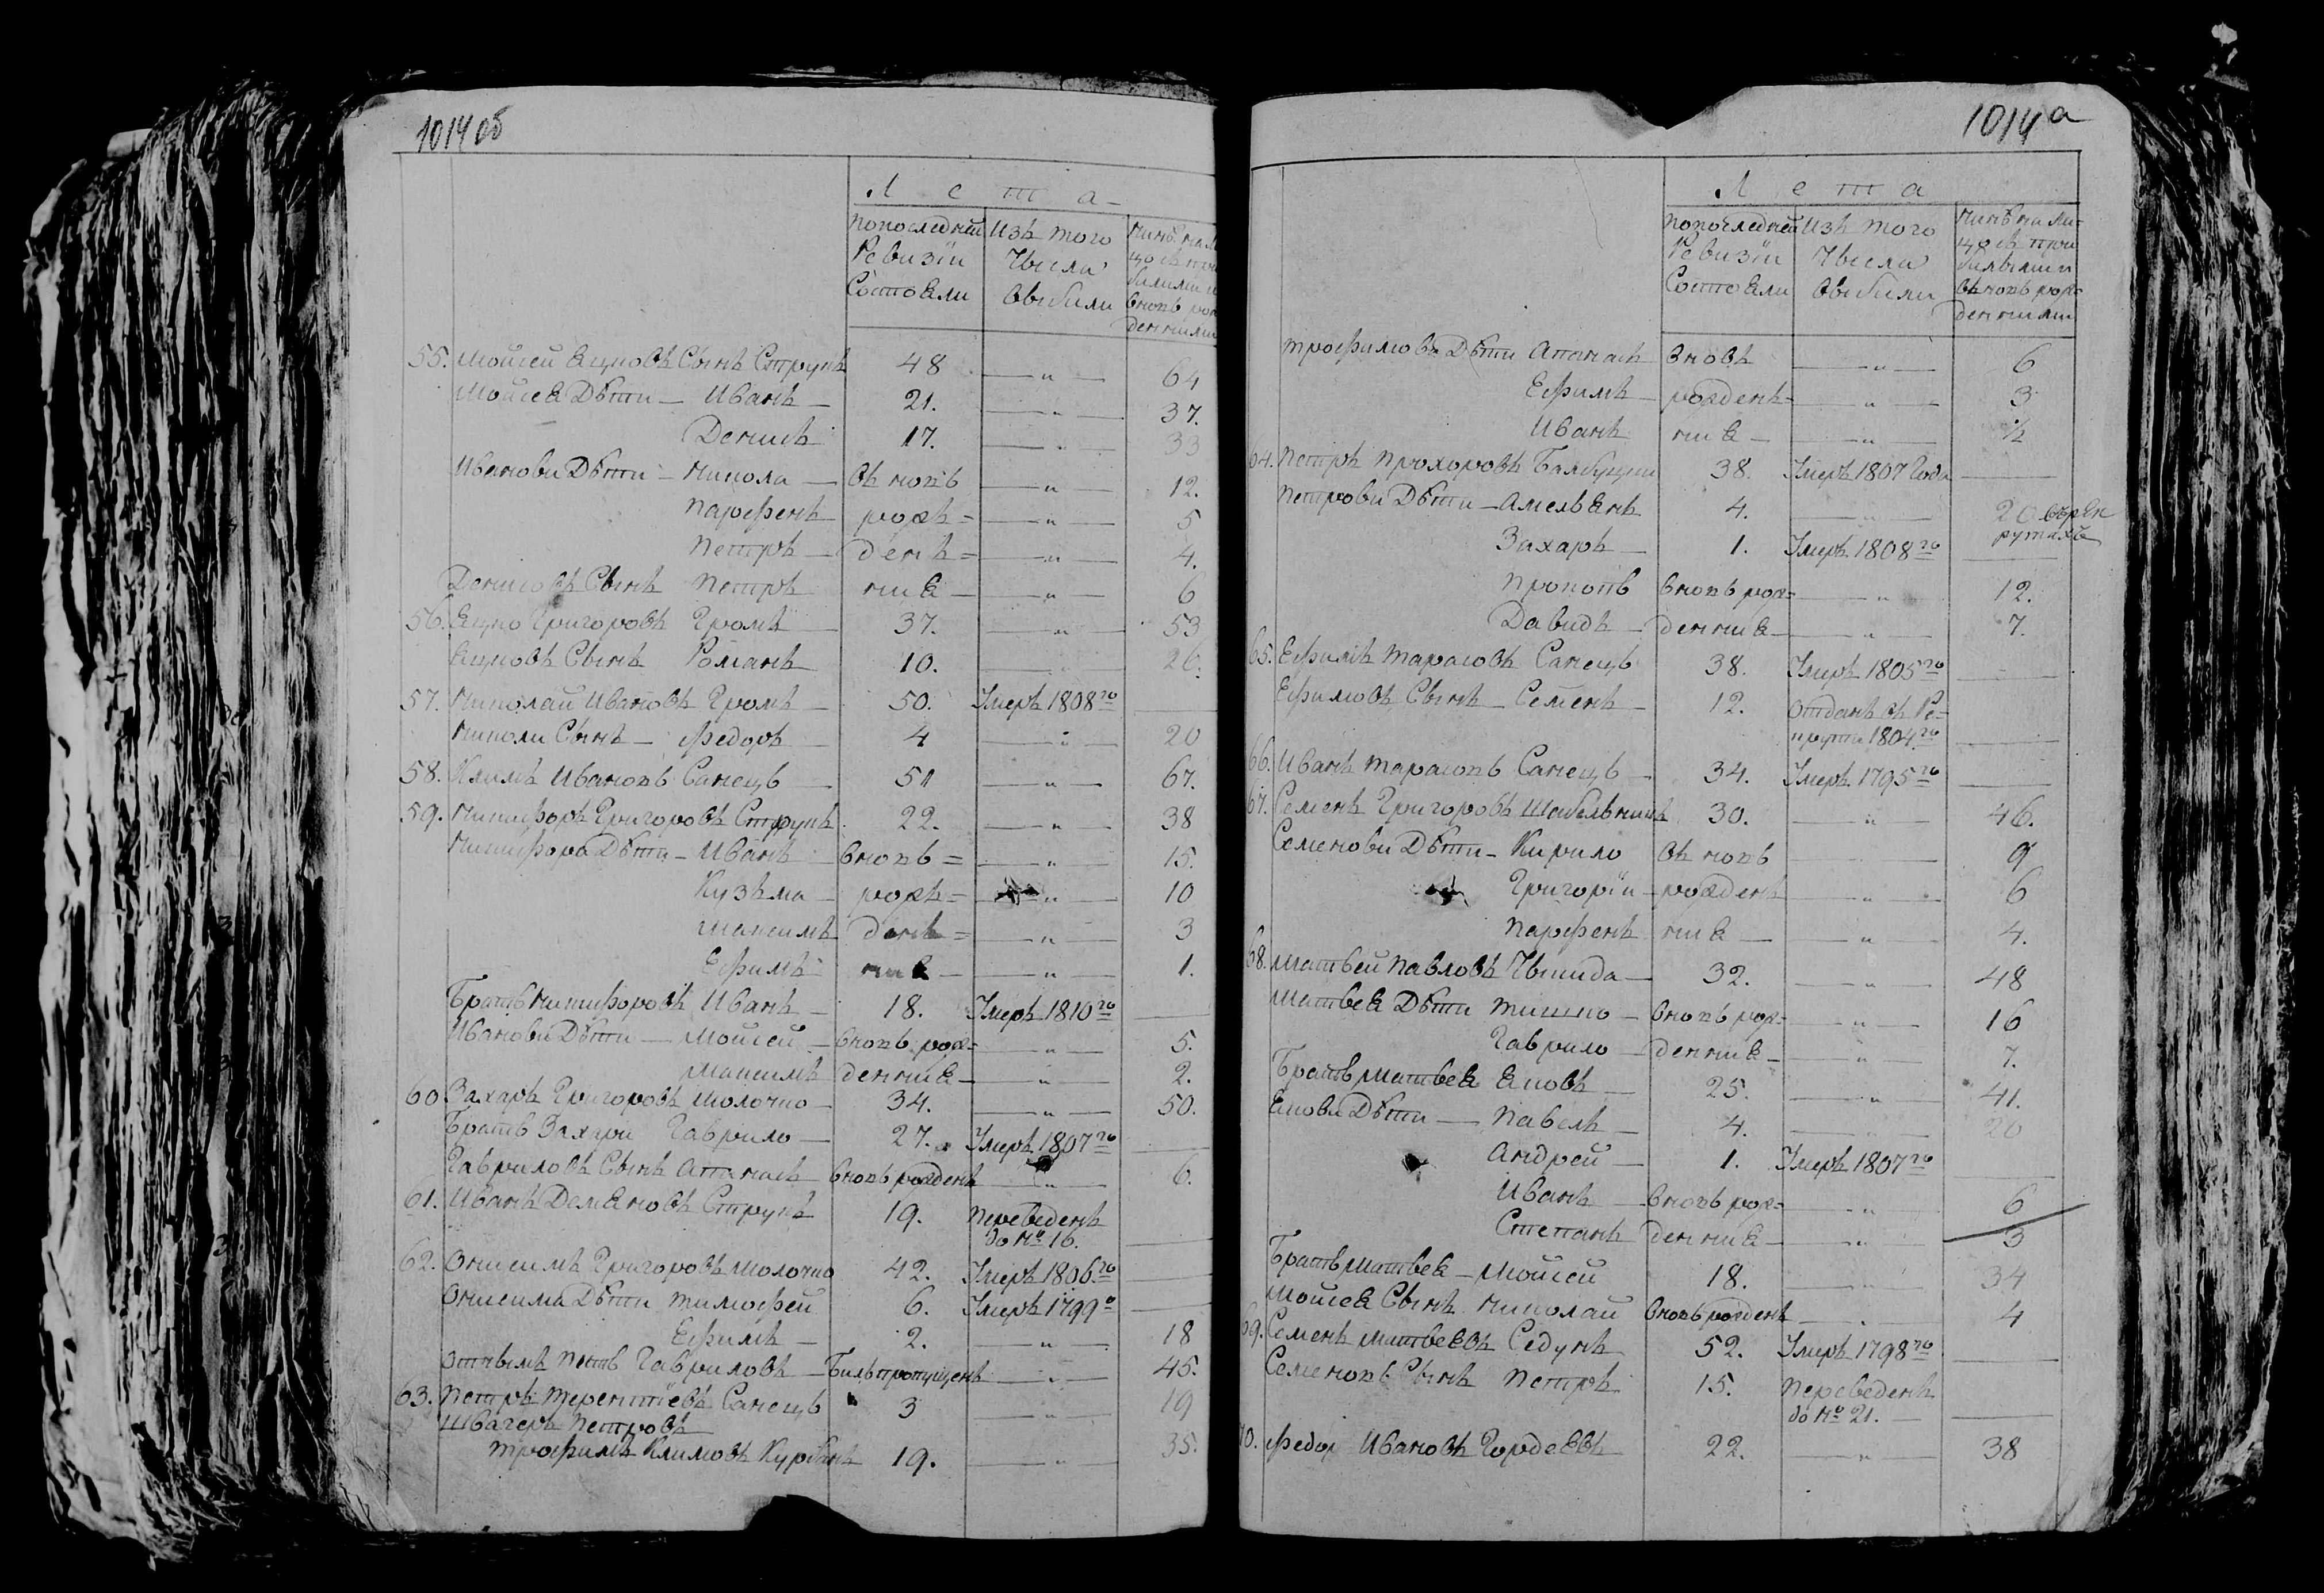 1014 об
Л е т а
Попоследней Изъ того Нинѣ на ли
Ревизіи Числа цо съ при
Состояли Выбыли былыми и
вновь рож
денными
55. Мойсей Яцковъ Сынъ Струкъ 48 — " — 64
Мойсея Дѣти — Иванъ — 21. — " — 37.
Денисъ 17. — " — 33
Иванови Дѣти — Никола — въ новъ — " — 12.
Парфенъ рожъ= — " — 5
Петръ — денъ= — " — 4.
Денисовъ Сынъ Петръ ния — — " — 6
56. Яцко Григоровъ Громъ — 37. — " — 53
Яцковъ Сынъ Романъ 10. — " — 26.
57. Николай Ивановъ Громъ — 50. Умеръ 1808го —
Николи Сынъ — Федоръ — 4 — " — 20
58. Климъ Ивановъ Санецъ — 51 — " — 67.
59. Никифоръ Григоровъ Струкъ 22. — " — 38
Никифора Дѣти — Иванъ — вновъ= — " — 15.
Кузьма — рожъ= — " — 10
Максимъ денъ= — " — 3
Ефимъ ния — — " — 1.
Братъ Никифоровъ Иванъ — 18. Умеръ 1810го —
Иванови Дѣти — Мойсей — вновъ рож= — " — 5.
Максимъ денния — — " — 2.
60 Захаръ Григоровъ Молочко — 34. — " — 50.
Братъ Захари Гаврило — 27. Умеръ 1807го —
Гавриловъ Сынъ Апанасъ вновъ рожденъ — " — 6.
61. Иванъ Демяновъ Струкъ 19. Переведенъ
до № 16. —
62. Онисимъ Григоровъ Молочко 42. Умеръ 1806го —
Онисима Дѣти Тимофей 6. Умеръ 1799о —
Ефимъ — 2. — " — 18
Гавриловъ — Былъ пропущенъ — " — 45.
63. Петръ Терентіевъ Санецъ 3 — " — 19
Швагеръ Петровъ
Трофимъ Климовъ Курбанъ 19. — " — 35.
1014а
Л е т а
Попоследней Изъ того Нинѣ на ли=
Ревизіи Числа цо съ при
Состояли Выбыли былыми и
въ новъ рож=
денными
Трофимова Дѣти Апанасъ вновъ — " — 6
Ефимъ — рожденъ= — " — 3
Иванъ ния — — " — ½
64. Петръ Прохоровъ 38. Умеръ 1807 Года —
Петрови Дѣти — Амельянъ 4. — " — 20 въ рек
рутахъ
Захаръ — 1. Умеръ 1808го —
Прокопъ вновъ рож= — " — 12.
Давидъ — денния — — " — 7.
65. Ефимъ Тарасовъ Санецъ 38. Умеръ 1805го —
Ефимовъ Сынъ — Семенъ — 12. отданъ въ Ре=
крути 1804го —
66. Иванъ Тарасовъ Санецъ — 34. Умеръ 1795го —
67. Семенъ Григоровъ Шабельникъ 30. — " — 46.
Семенови Дѣти — Кирило въ новъ — " — 9
Григорій — рожденъ — " — 6
Парфенъ ния — — " — 4.
68. Матвей Павловъ 32. — " — 48
Матвея Дѣти Тишко — вновъ рож= — " — 16
Гаврило — денния — — " — 7.
Братъ Матвея Яковъ — 25. — " — 41.
Якови Дѣти — Павелъ — 4. — " — 20
Андрей — 1. Умеръ 1807го —
Иванъ — вновъ рож= — " — 6
Степанъ денния — — " — 3
Братъ Матвея — Мойсей 18. — " — 34
Мойсея Сынъ Николай вновъ рожденъ — " — 4
69. Семенъ Матвеевъ Седунъ 52. Умеръ 1798го —
Семеновъ Сынъ Петръ 15. Переведенъ
до № 21. — —
70. Федор Ивановъ Гордеевъ 22. — " — 38